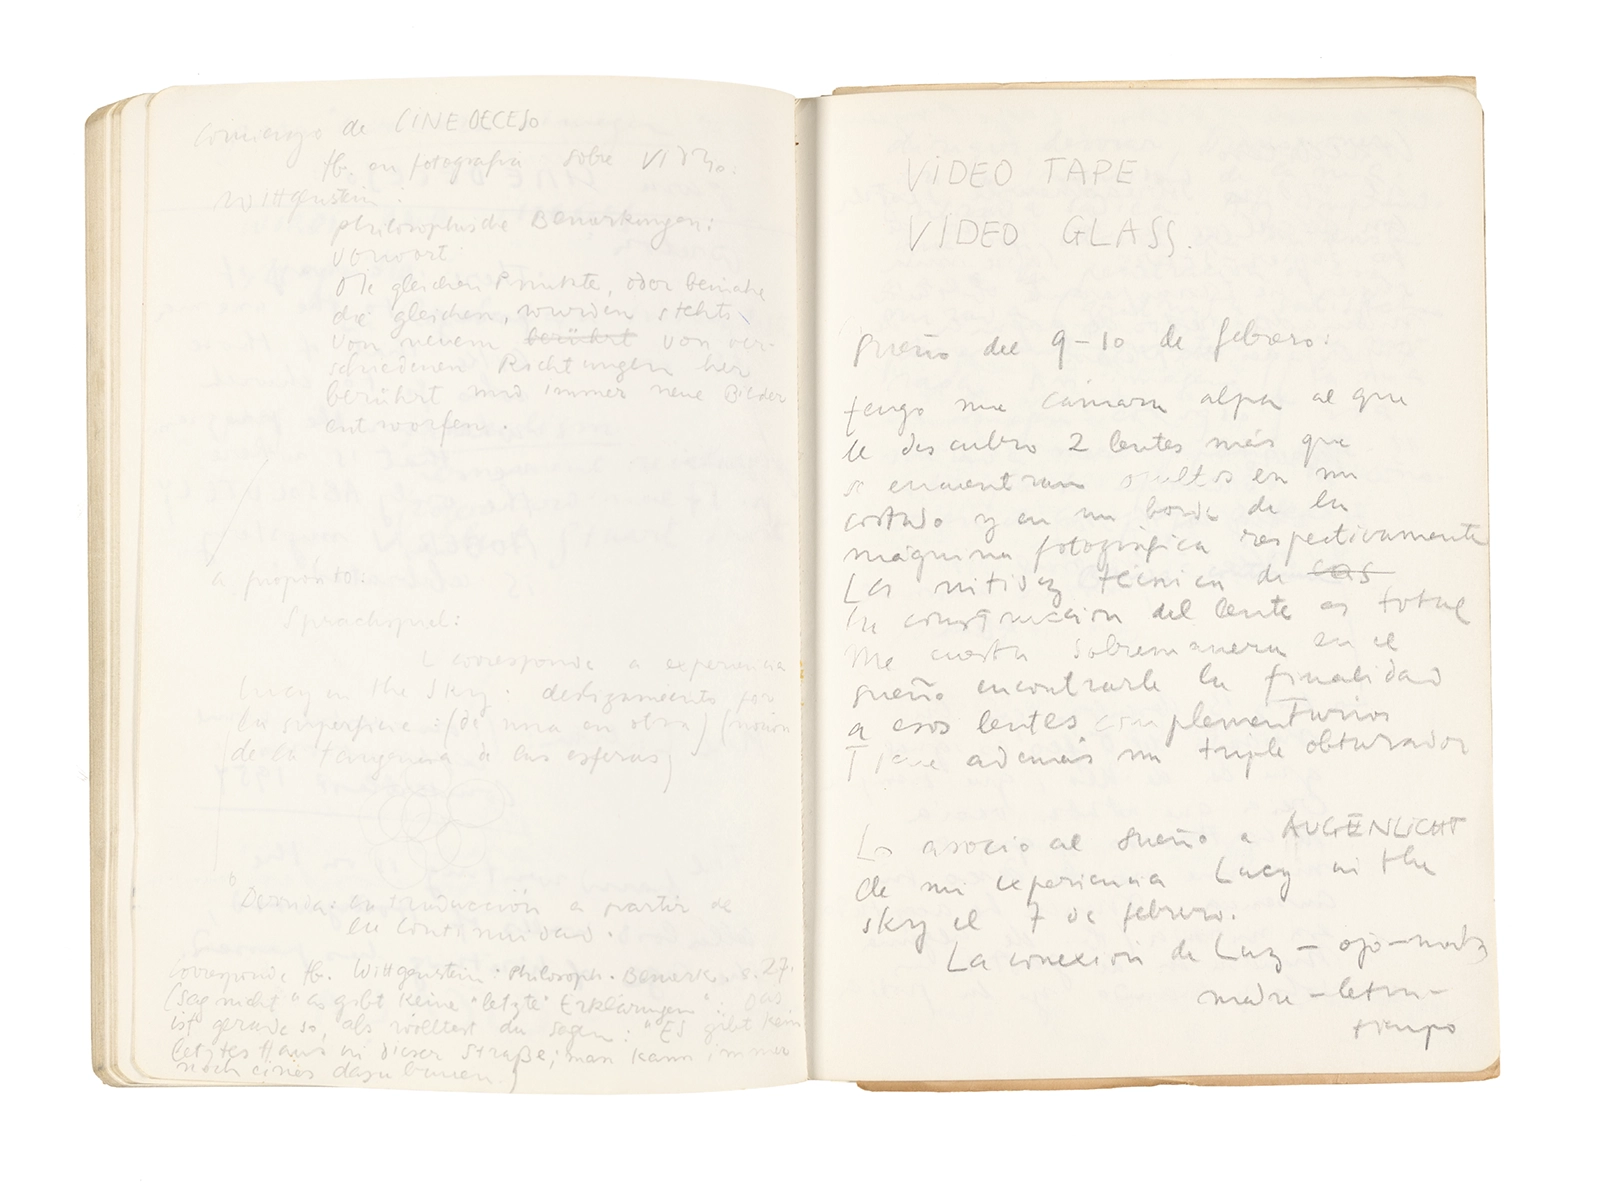 comienzo de CINE DECESO
tb. en fotografía sobre vidrio:
Wittgenstein:
philosophische Bemerkungen:
Vorwort:
Die gleichen Punkte, oder beinahe
die gleichen, wurden stehts
von neuem berührt von ver-
schiedenen Richtungen her
berührt und immer neue Bilder
entworfen.
a propósito:
Sprachspiel:
corresponde a experiencia
Lucy in the Sky. deslizamiento por
la superficie: (de una en otra) (noción
de la tangencia de las esferas)
Derrida: introducción a partir de
la continuidad.
corresponde tb. Wittgenstein: Philosoph. Bemerk. s. 27.
(Sag nicht "es gibt keine "letzte" Erklärungen": Das
ist gerade so, als wolltest du sagen: "Es gibt kein
letztes Haus in dieser Straße; man kann immer
noch eines dazu bauen.)
VIDEO TAPE
VIDEO GLASS.
sueño del 9-10 de febrero:
tengo una cámara alpa al que
le descubro 2 lentes más que
se encuentran ocultos en un
costado y en un borde de la
máquina fotográfica respectivamente
La nitidez técnica de las
la construcción del lente es total
Me cuesta sobremanera en el
sueño encontrarle la finalidad
a esos lentes complementarios
Tiene además un triple obturador
Lo asocio al sueño a AUGENLICHT
de mi experiencia Lucy in the
sky el 7 de febrero.
La conexión de Luz - ojo -
madre - letra -
tiempo